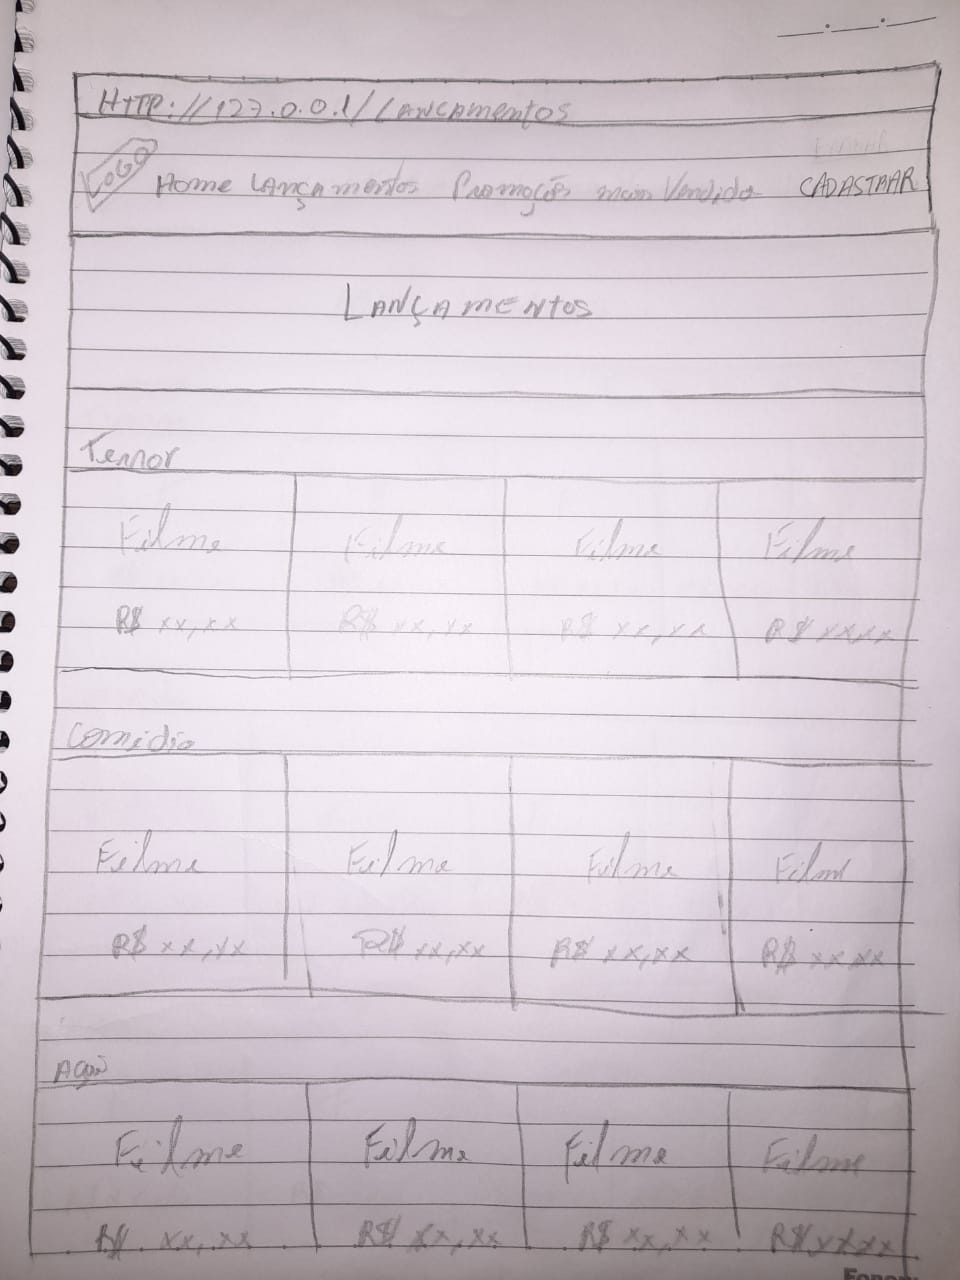 HTTP://127.0.0.1/Lancamentos
LOGO Home Lançamentos Promoções mais Vendido CADASTRAR
LANÇAMENTOS
Terror
Filme Filme Filme Filme
R$ xx,xx R$ xx,xx R$ xx,xx R$ xxxx
Comédia
Filme Filme Filme Filme
R$ xx,xx R$ xx,xx R$ xx,xx R$ xx xx
Ação
Filme Filme Filme Filme
R$ xx,xx R$ xx,xx R$ xx,xx R$ xxxx